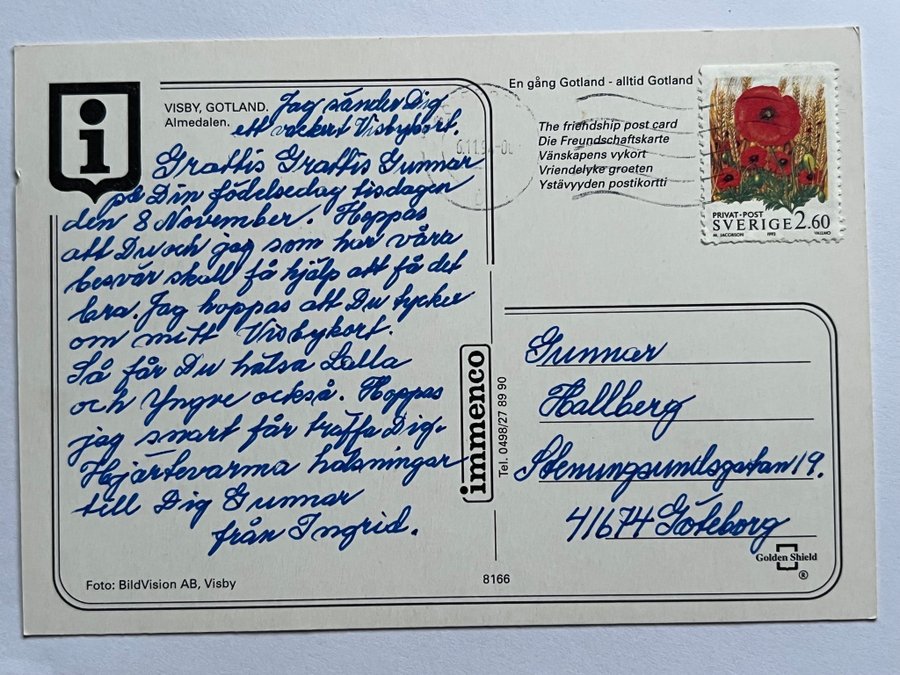 i
VISBY, GOTLAND.
Almedalen.
Jag sänder Dig
ett vackert Visbykort.
Grattis Grattis Gunnar
på Din födelsedag tisdagen
den 8 November. Hoppas
att Du och jag som har våra
besvär skall få hjälp att få det
bra. Jag hoppas att Du tycker
om mitt Visbykort.
Så får Du hälsa Lalla
och Yngve också. Hoppas
jag snart får träffa Dig.
Hjärtevarma hälsningar
till Dig Gunnar
från Ingrid.
Foto: BildVision AB, Visby
8166
immenco
Tel. 0498/27 89 90
En gång Gotland - alltid Gotland
The friendship post card
Die Freundschaftskarte
Vänskapens vykort
Vriendelyke groeten
Ystävyyden postikortti
PRIVAT·POST
SVERIGE 2.60
M. JACOBSON 1993 VALLMO
Gunnar
Hallberg
Stenungsundsgatan 19.
41674 Göteborg
Golden Shield
®